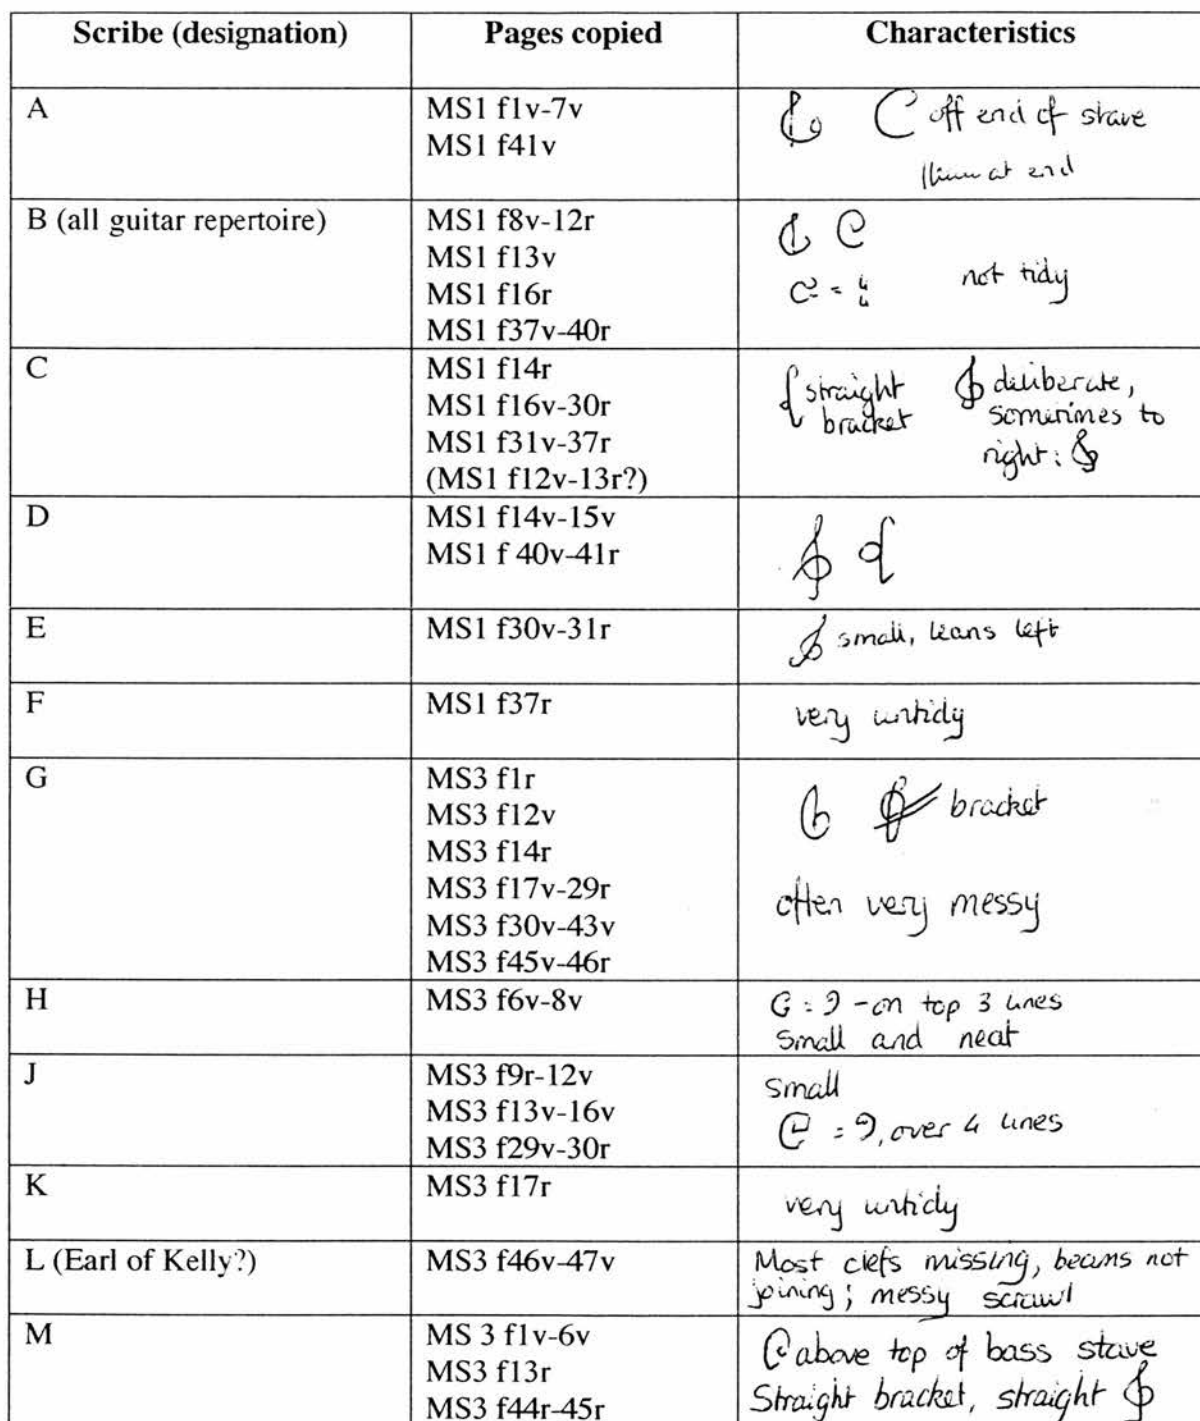 Scribe (designation) Pages copied Characteristics
A
MS1 f1v-7v
MS1 f41v
off end of stave
at end
B (all guitar repertoire)
MS1 f8v-12r
MS1 f13v
MS1 f16r
MS1 f37v-40r
not tidy
C
MS1 f14r
MS1 f16v-30r
MS1 f31v-37r
(MS1 f12v-13r?)
straight deliberate,
bracket sometimes to
right:
D
MS1 f14v-15v
MS1 f 40v-41r
E
MS1 f30v-31r
small, leans left
F
MS1 f37r
very untidy
G
MS3 f1r
MS3 f12v
MS3 f14r
MS3 f17v-29r
MS3 f30v-43v
MS3 f45v-46r
bracket
often very messy
H
MS3 f6v-8v
- on top 3 lines
small and neat
J
MS3 f9r-12v
MS3 f13v-16v
MS3 f29v-30r
small
, over 4 lines
K
MS3 f17r
very untidy
L (Earl of Kelly?)
MS3 f46v-47v
Most clefs missing, beams not
joining; messy scrawl
M
MS 3 f1v-6v
MS3 f13r
MS3 f44r-45r
above top of bass stave
Straight bracket, straight